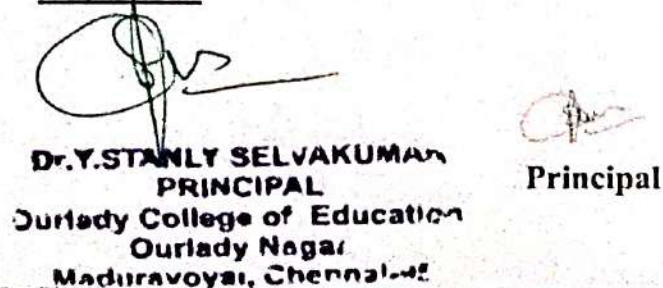 Dr.Y.STANLY SELVAKUMAR
PRINCIPAL
Ourlady College of Education
Ourlady Nagar
Maduravoyal, Chennai
Principal